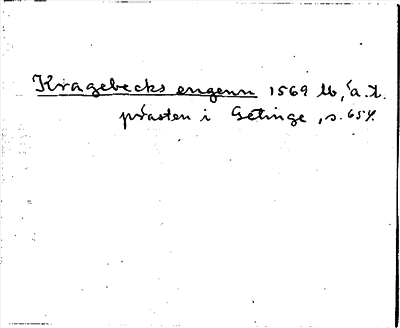 Kragebecks engenn 1569 Lb, åa.t.
prästen i Getinge, s. 657.